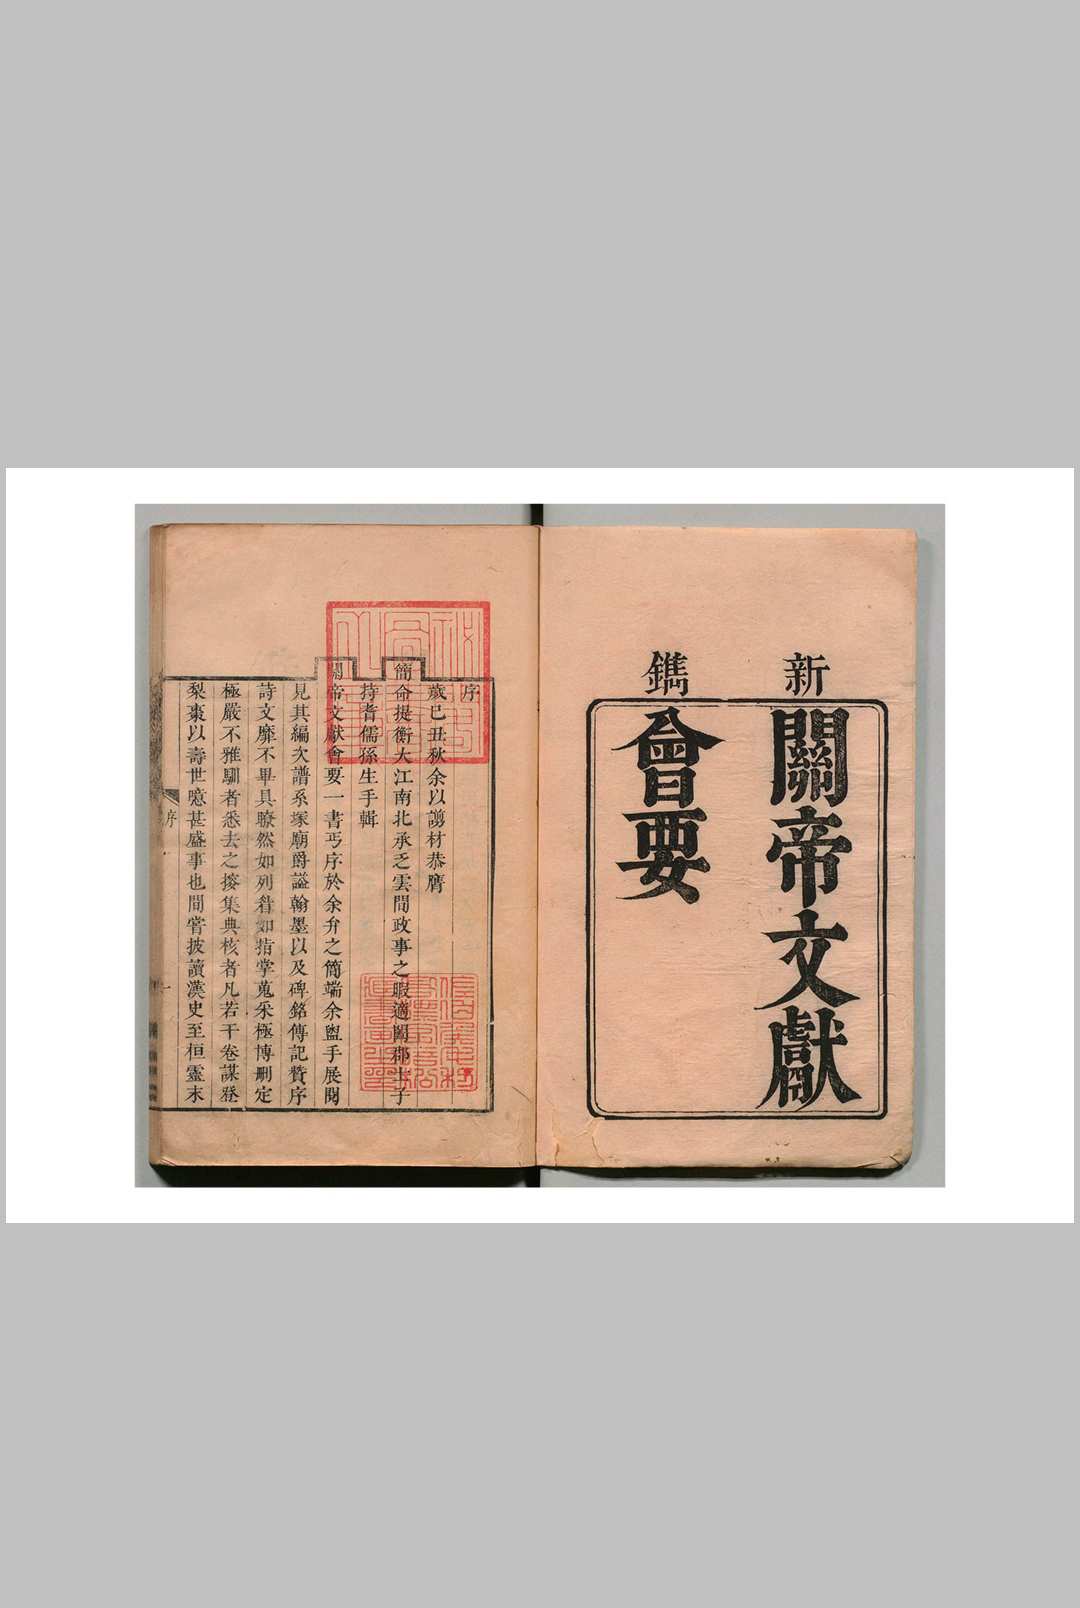 新鐫
關帝文獻
會要
序
歲己丑秋余以譾材恭膺
簡命提衡大江南北承乏雲間政事之暇適闔郡士子
持耆儒孫生手輯
關帝文獻會要一書丐序於余弁之簡端余盥手展閱
見其編次譜系塚廟爵諡翰墨以及碑銘傳記贊序
詩文靡不畢具瞭然如列眉如指掌蒐采極博刪定
極嚴不雅馴者悉去之摭集典核者凡若干卷謀登
梨棗以壽世噫甚盛事也間嘗披讀漢史至桓靈末
序
一